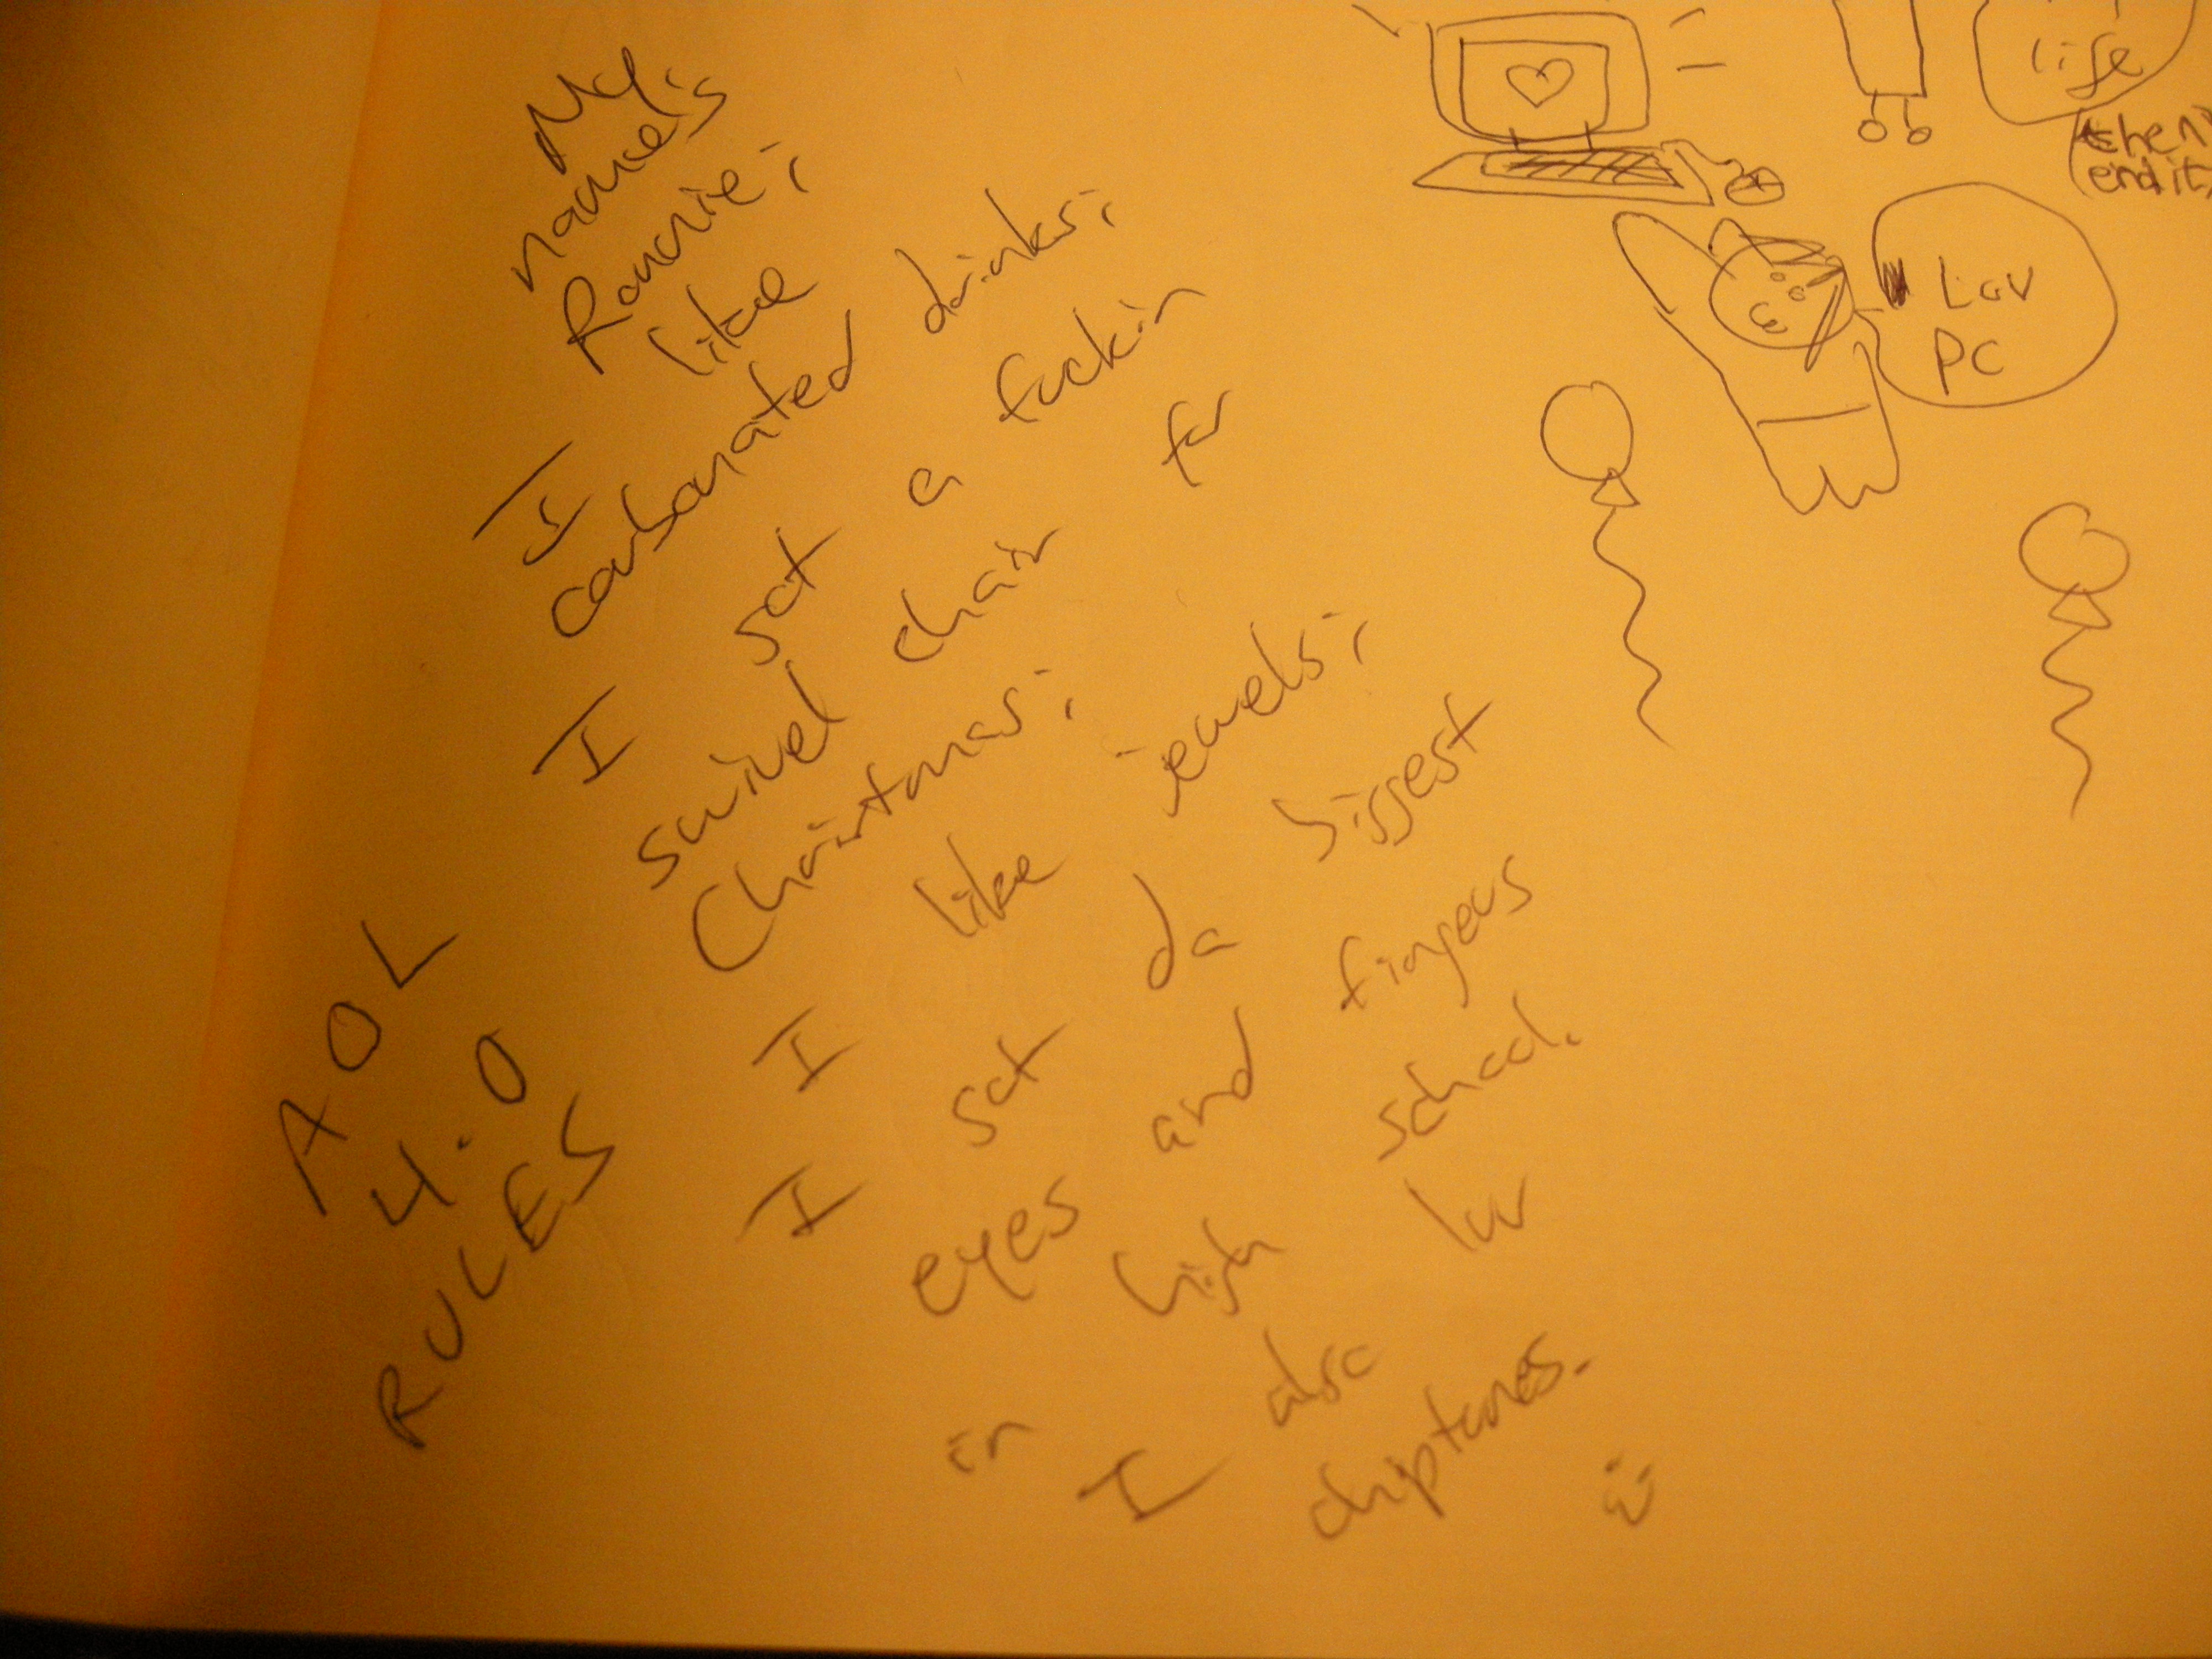 My
name's
Ronnie;
I like
carbonated drinks;
I got a fuckin
swivel chair for
Christmas;
I like jewels;
I got da biggest
eyes and fingers
in high school.
I also luv
chiptunes.
AOL
4.0
RULES
life
then
end it
Luv
PC